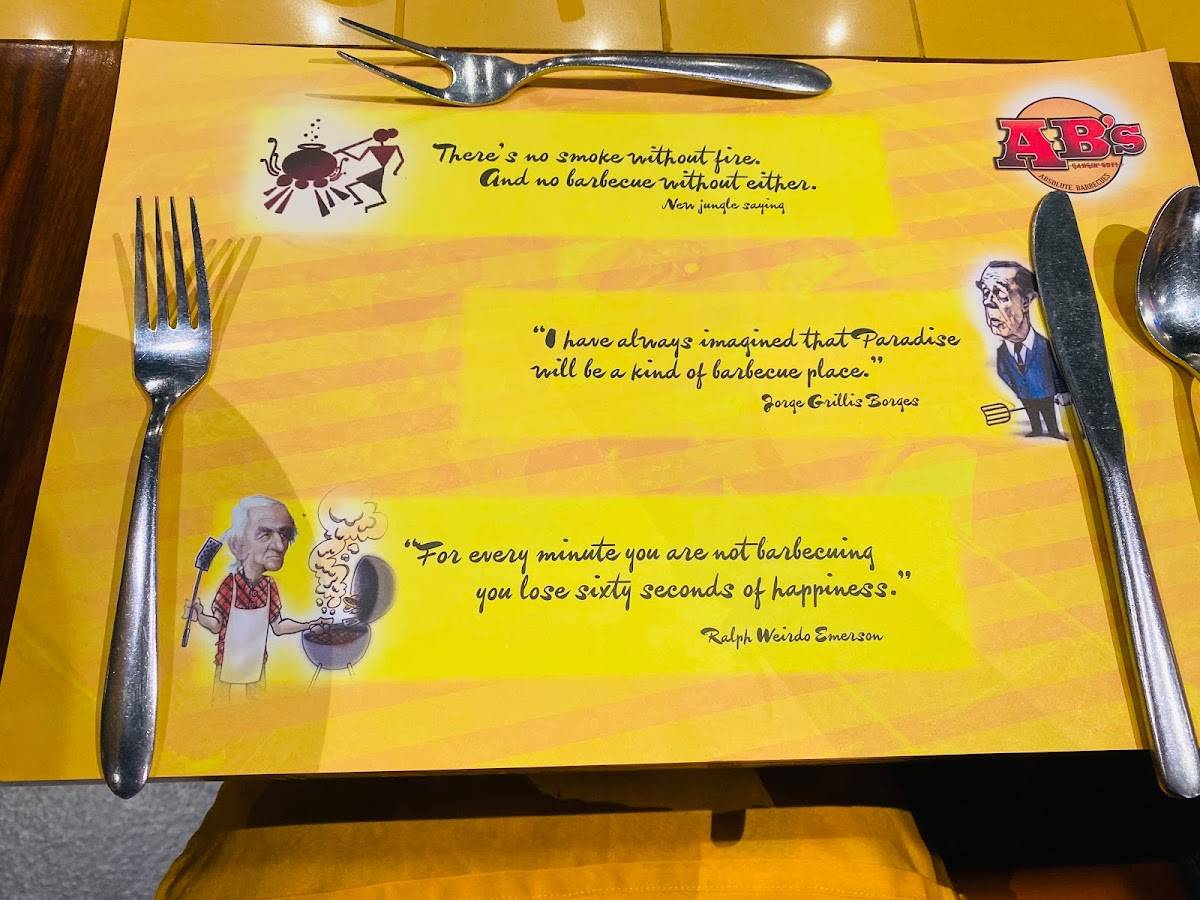 There's no smoke without fire.
And no barbecue without either.
New jungle saying
AB's
ABSOLUTE BARBECUES
“I have always imagined that Paradise
will be a kind of barbecue place.”
Jorge Grillis Borges
“For every minute you are not barbecuing
you lose sixty seconds of happiness.”
Ralph Weirdo Emerson